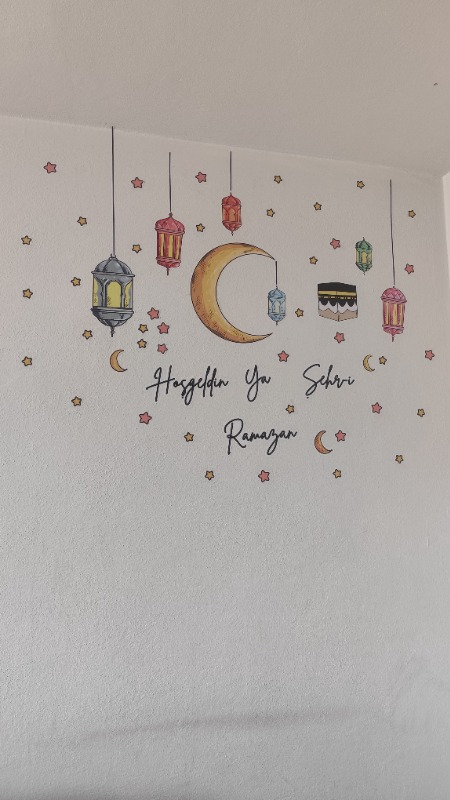 Hoşgeldin Ya Şehr-i
Ramazan